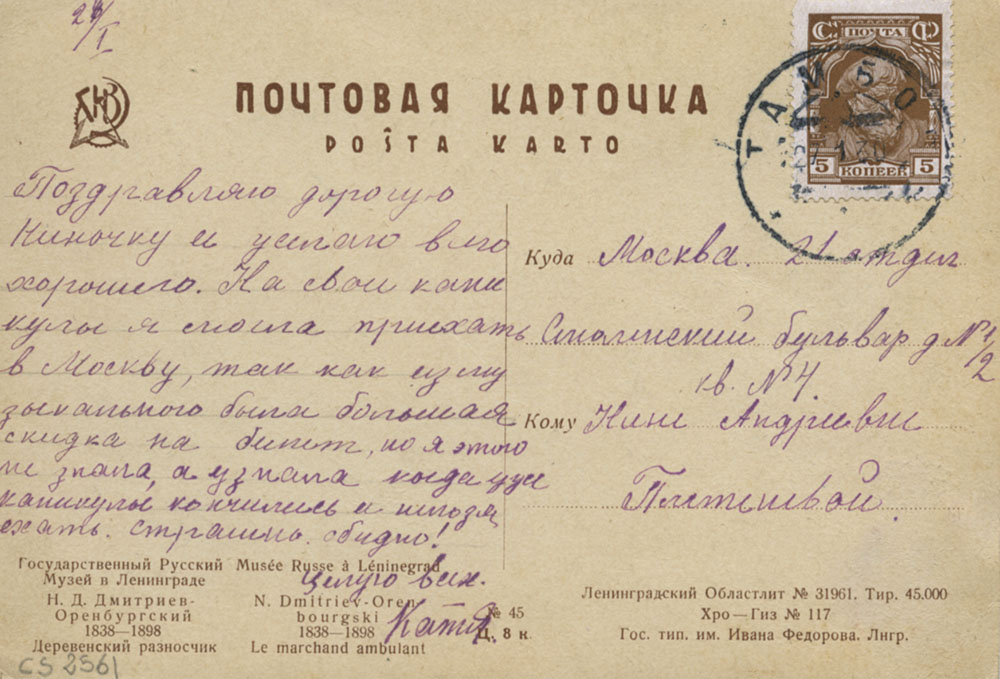 26/I
АХР
ПОЧТОВАЯ КАРТОЧКА
POŜTA KARTO
ПОЧТА
5 КОПЕЕК 5
Поздравляю дорогую
Ниночку и желаю всего
хорошего. На свои кани
кулы я могла приехать
в Москву, так как из му
зыкального была большая
скидка на билет, но я этого
не знала, а узнала когда уже
каникулы кончились и нельзя
ехать. Страшно обидно!
целую всех.
Катя.
Куда Москва. 21 отдел
Смоленский бульвар д. № 1/2
кв. № 4
Кому Нине Андреевне
Плетеневой.
Государственный Русский
Музей в Ленинграде
Н. Д. Дмитриев-
Оренбургский
1838—1898
Деревенский разносчик
Musée Russe à Léningrad
N. Dmitriev-Oren
bourgski
1838—1898
Le marchand ambulant
№ 45
Ц. 8 к.
Ленинградский Областлит № 31961. Тир. 45.000
Хро—Гиз № 117
Гос. тип. им. Ивана Федорова. Лнгр.
CS 2561